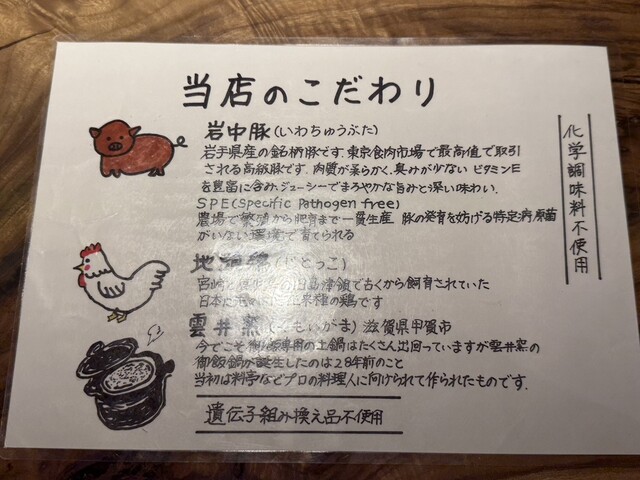 当店のこだわり
岩中豚(いわちゅうぶた)
岩手県産の銘柄豚です。東京食肉市場で最高値で取引
される高級豚です。肉質が柔らかく、臭みが少ない ビタミンE
を豊富に含み、ジューシーでまろやかな旨みと深い味わい。
SPE(Specific Pathogen free)
農場で繁殖から肥育まで一貫生産 豚の発育を妨げる特定病原菌
がいない環境で育てられる
地鶏(じとっこ)
宮崎と鹿児島の旧島津領で古くから飼育されていた
日本に 在来種の鶏です
雲井窯(くもいがま) 滋賀県甲賀市
今でこそ御飯専用の土鍋はたくさん出回っていますが雲井窯の
御飯鍋が誕生したのは28年前のこと
当初は料亭などプロの料理人に向けられて作られたものです.
遺伝子組み換え品不使用
化学調味料不使用